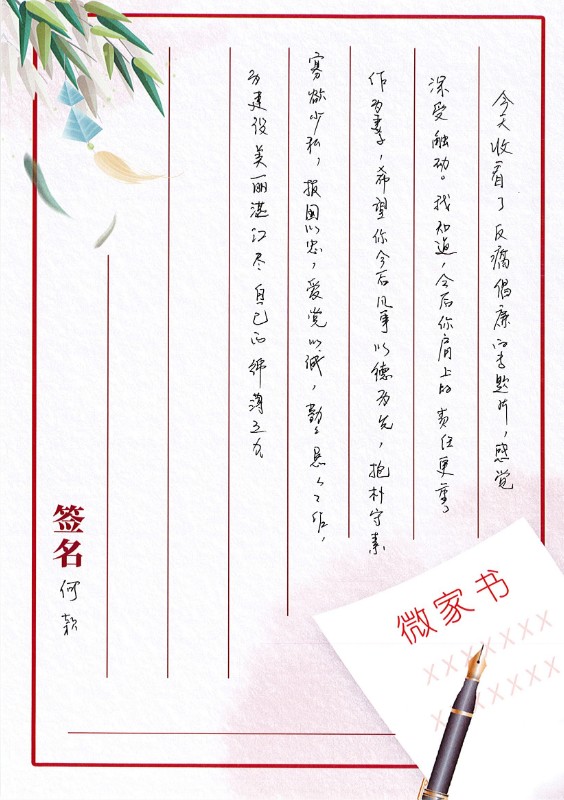 今天收看了反腐倡廉的专题片，感觉
深受触动。我知道，今后你肩上的责任更重了
作为妻子，希望你今后凡事以德为先，抱朴守素
寡欲少私，报国以忠，爱党以诚，勤恳工作，
为建设美丽湛江尽自己的绵薄之力。
签名
何款
微家书
XXXXXXX
XXXXXXX